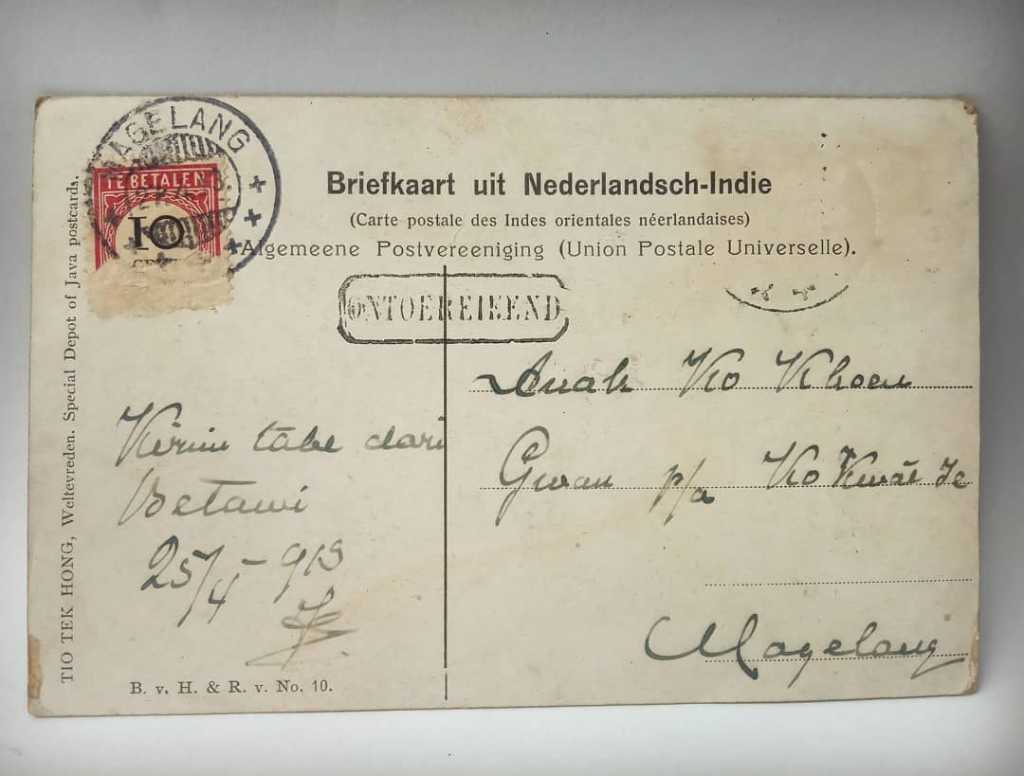 MAGELANG
TE BETALEN
10
Briefkaart uit Nederlandsch-Indie
(Carte postale des Indes orientales néerlandaises)
Algemeene Postvereeniging (Union Postale Universelle).
ONTOEREIKEND
Anak Ko Khoen
Gwan p/a Ko Kwat Ie
Magelang
Kirim tabe dari
Betawi
25/4-913
B. v. H. & R. v. No. 10.
TIO TEK HONG, Weltevreden. Special Depot of Java postcards.